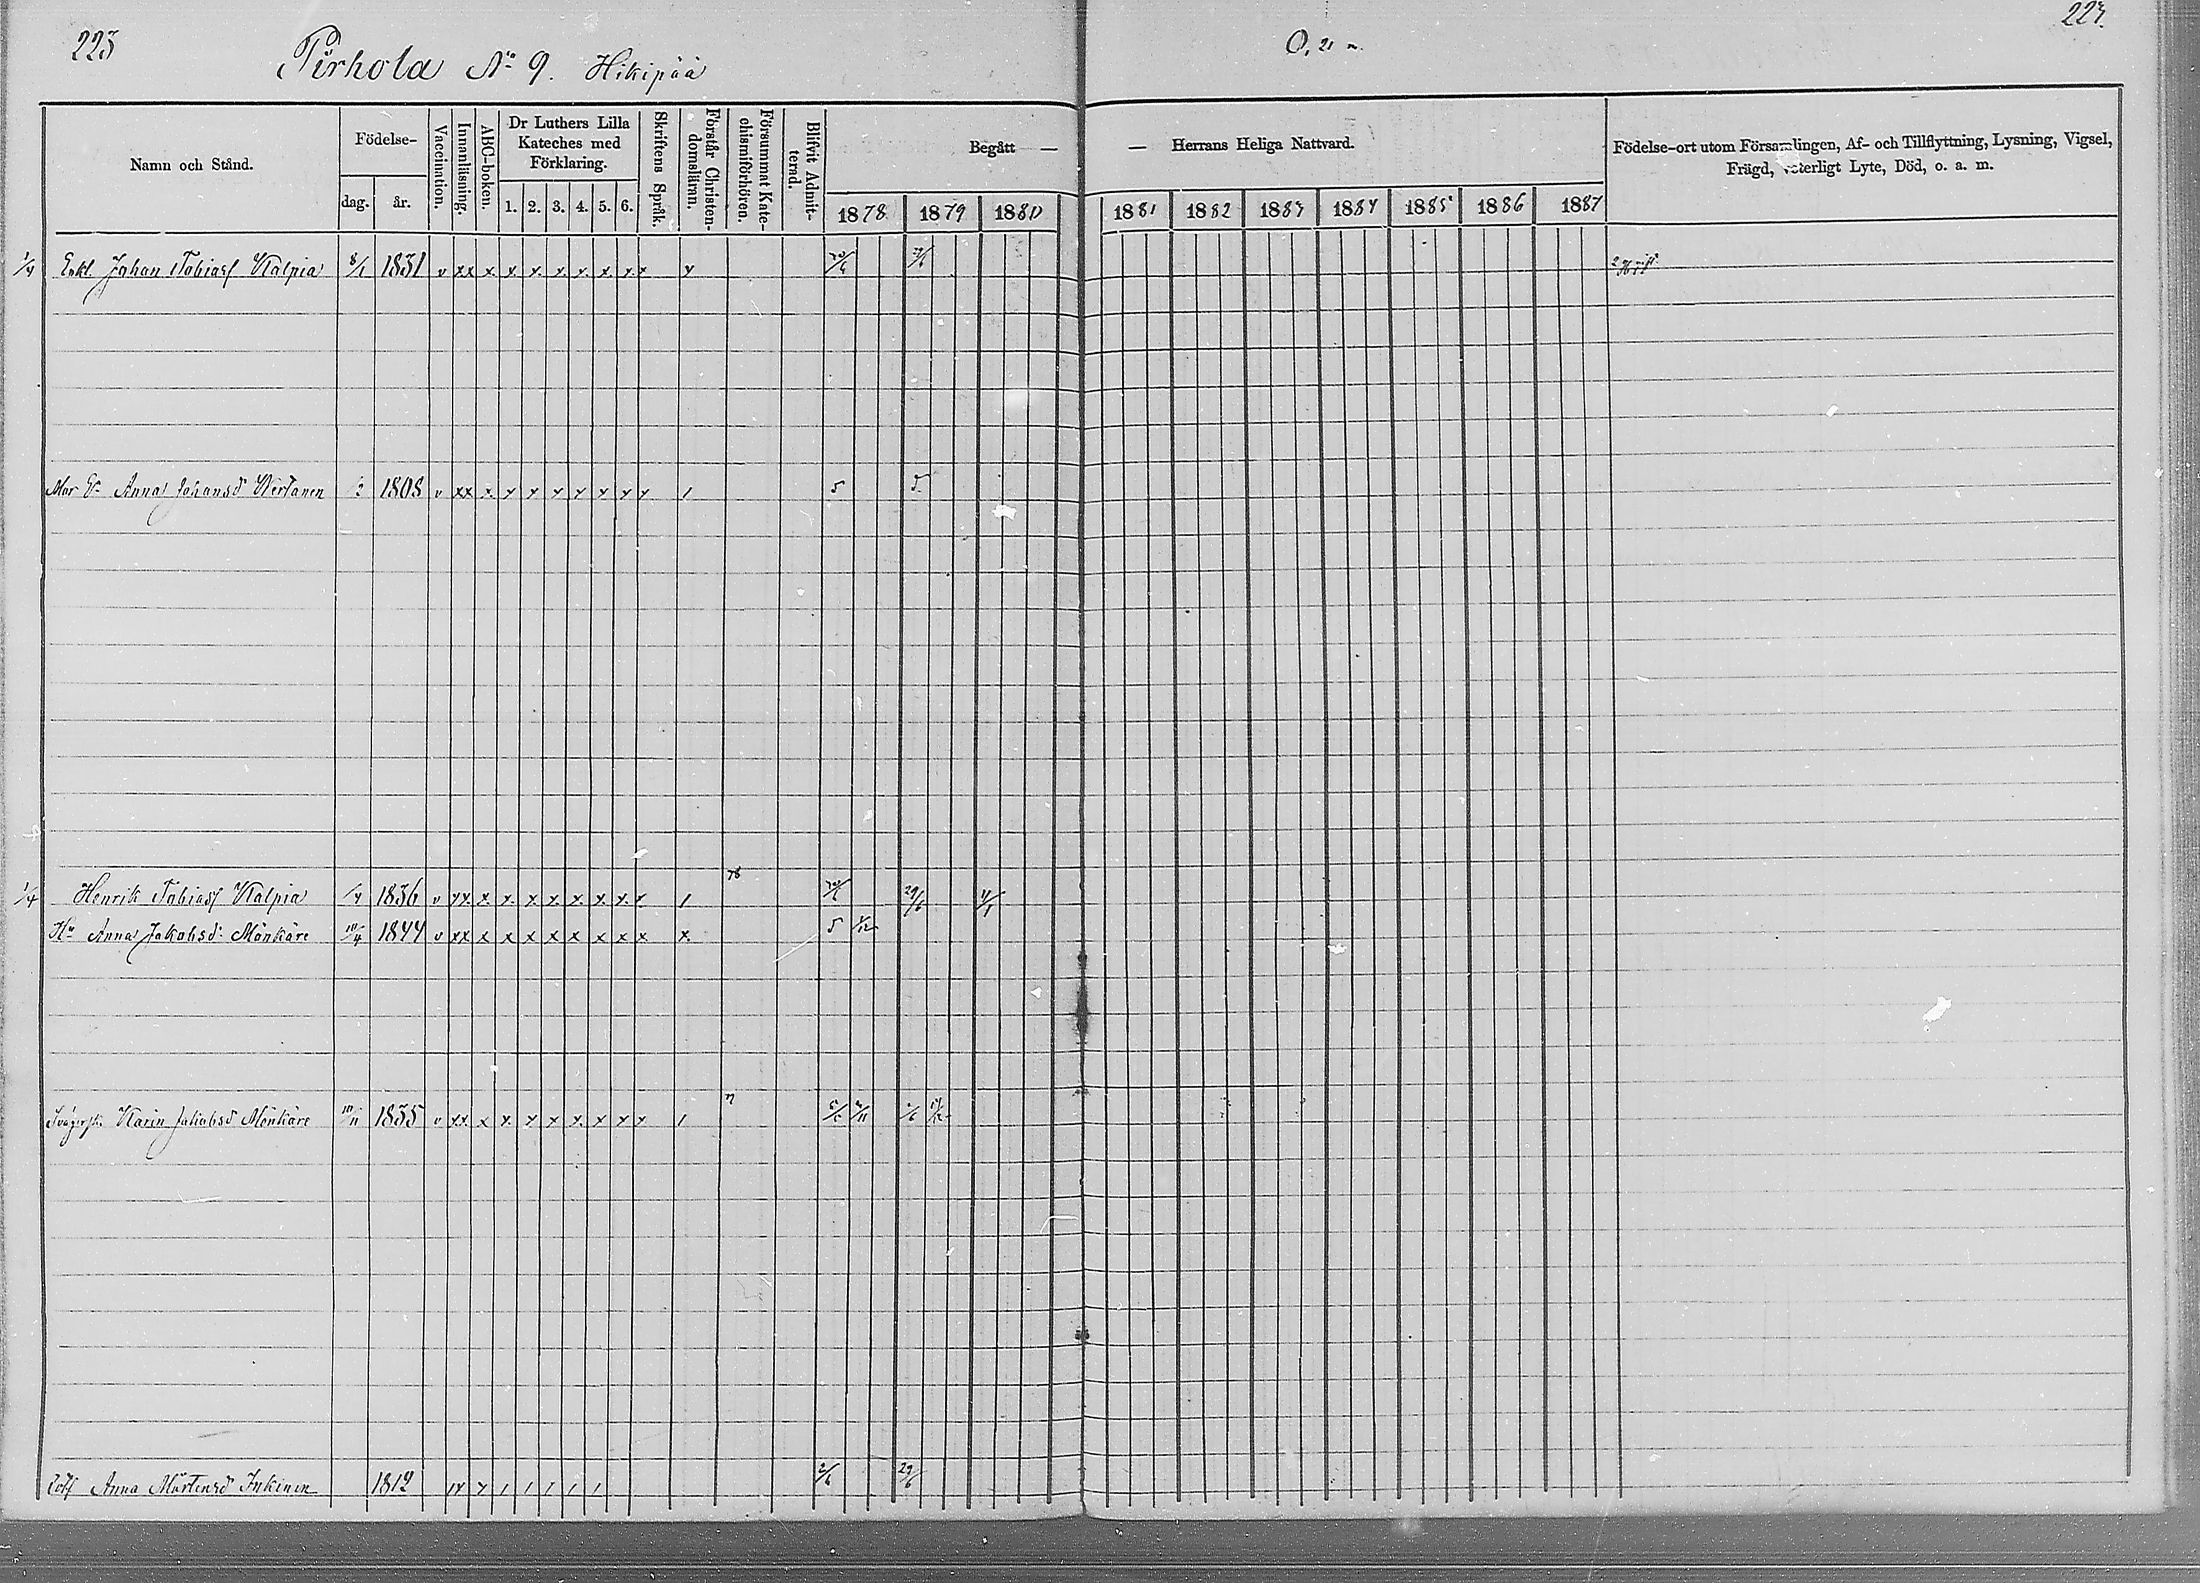 223
Pirhola No 9. Hikipää
O, 21 m.
223.
Namn och Stånd.
Födelse-
dag.
år.
Vaccination.
Innanläsning.
ABC-boken.
Dr Luthers Lilla
Kateches med
Förklaring.
1. 2. 3. 4. 5. 6.
Skriftens Språk.
Förstår Christen-
domsläran.
Försummat Kate-
chismiförhören.
Blifvit Admit-
terad.
Begått — — Herrans Heliga Nattvard.
1878 1879 1880 1881 1882 1883 1884 1885 1886 1887
Födelse-ort utom Församlingen, Af- och Tillflyttning, Lysning, Vigsel,
Frägd, veterligt Lyte, Död, o. a. m.
1/4 Enkl. Johan Tobiass Valpia 8/1 1831 v xx x x x x x x x x x 29/6
Mor E. Anna Johansd Wertanen 1808 v xx x x x x x x x x / 5 5
1/4 Henrik Tobiass Valpia 1/4 1836 v xx x x x x x x x x / 78 29/6
Hu Anna Jakobsd. Mönkäre 10/4 1844 v xx x x x x x x x x x 5 1/12
Karin Jakobsd Mönkäre 10/11 1835 v xx x x x x x x x x /
Anna Mårtensd Inkinen 1812 2/6 29/6